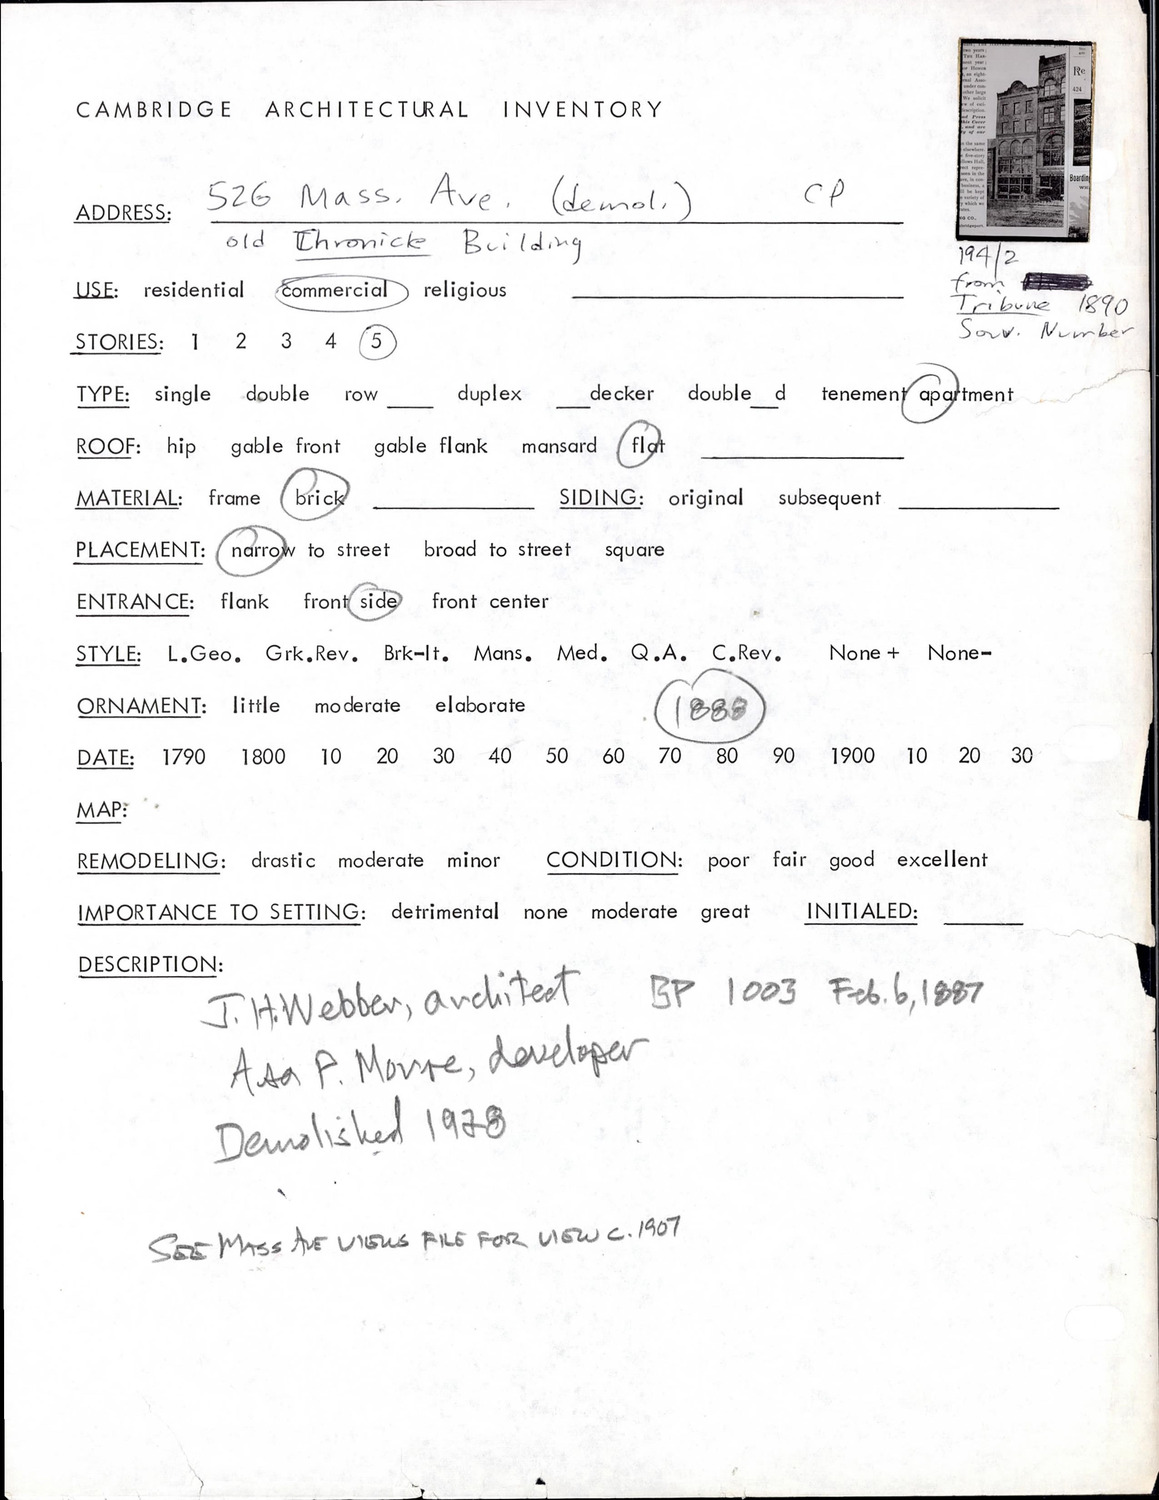 CAMBRIDGE ARCHITECTURAL INVENTORY
ADDRESS: 526 Mass. Ave. (demol.) CP
old Chronicle Building
194/2
from
Tribune 1890
Souv. Number
USE: residential commercial religious
STORIES: 1 2 3 4 5
TYPE: single double row ___ duplex ___decker double__d tenement apartment
ROOF: hip gable front gable flank mansard flat
MATERIAL: frame brick SIDING: original subsequent
PLACEMENT: narrow to street broad to street square
ENTRANCE: flank front side front center
STYLE: L.Geo. Grk.Rev. Brk-It. Mans. Med. Q.A. C.Rev. None+ None-
ORNAMENT: little moderate elaborate 1888
DATE: 1790 1800 10 20 30 40 50 60 70 80 90 1900 10 20 30
MAP:
REMODELING: drastic moderate minor CONDITION: poor fair good excellent
IMPORTANCE TO SETTING: detrimental none moderate great INITIALED:
DESCRIPTION:
J.H. Webber, architect BP 1003 Feb. 6, 1887
Asa P. Morse, developer
Demolished 1928
SEE MASS AVE VIEWS FILE FOR VIEW C. 1907